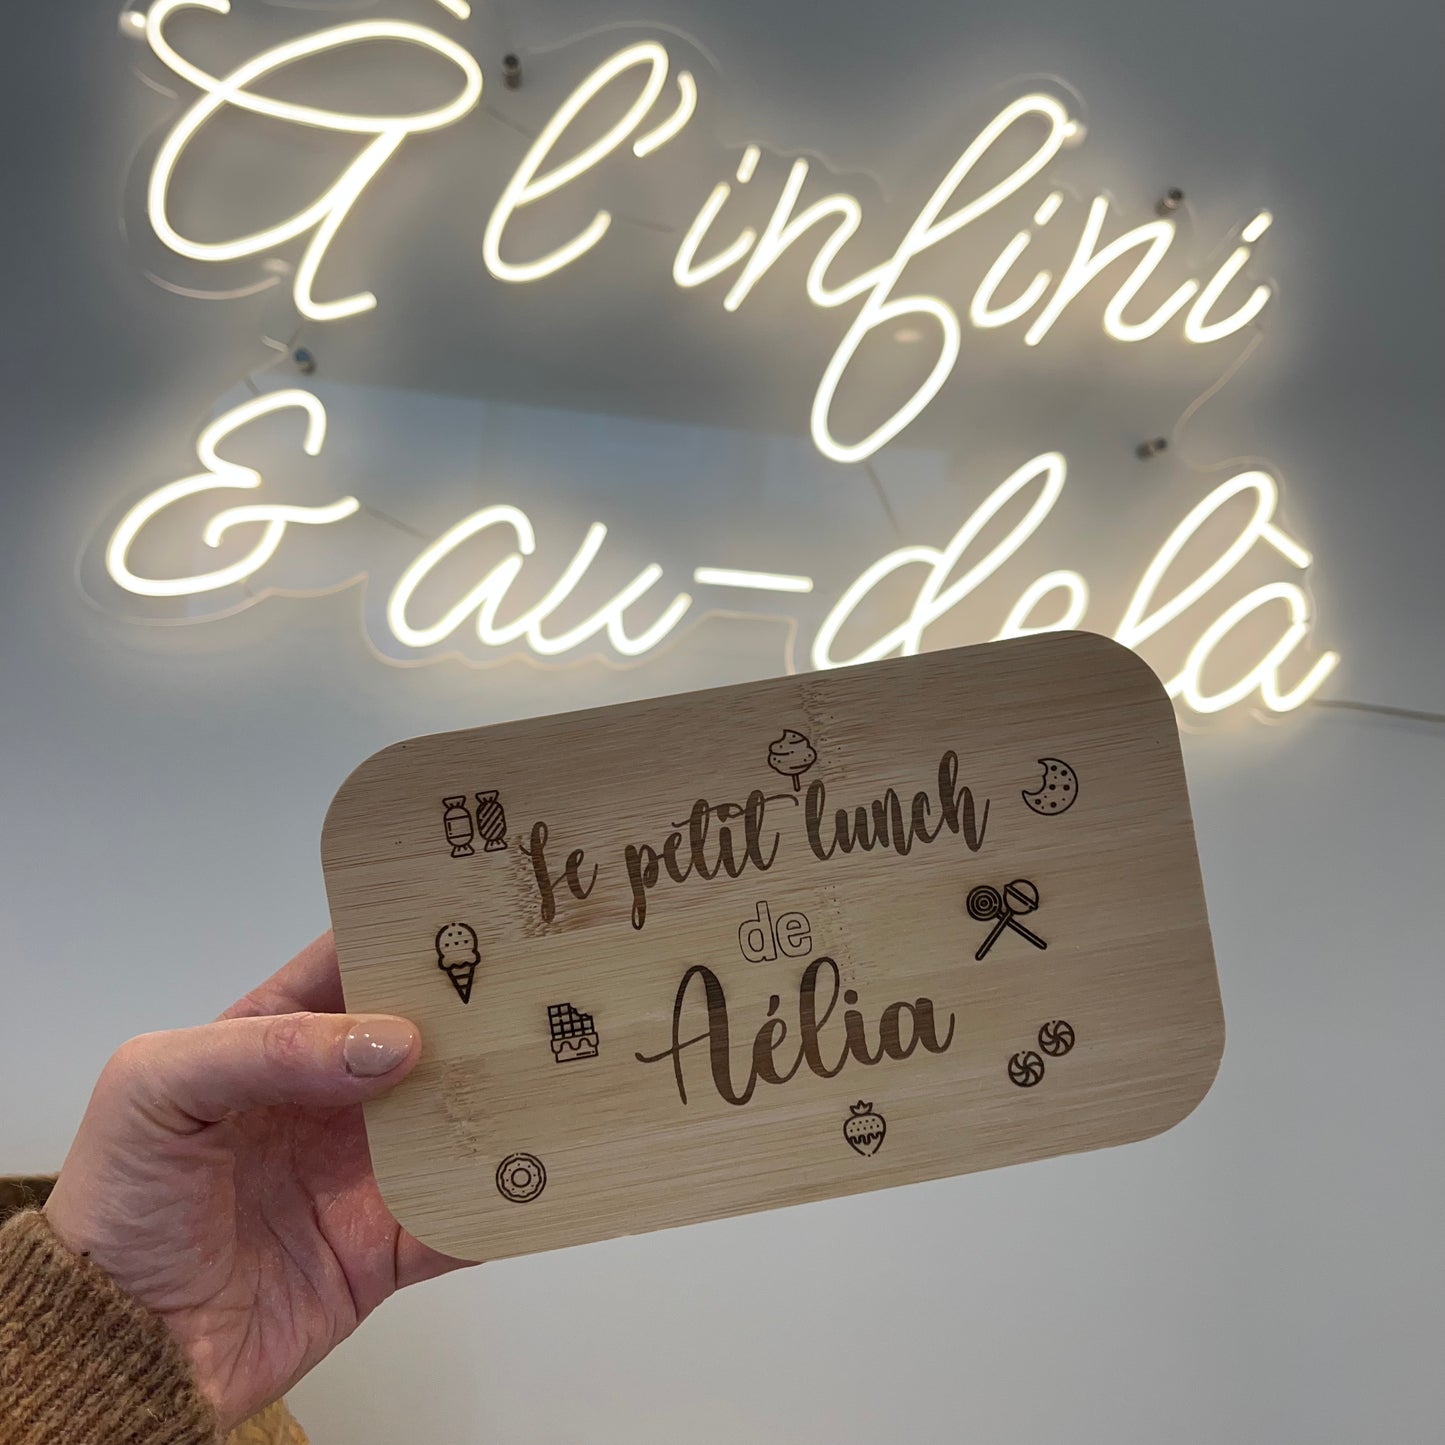 À l'infini
& au-delà
Le petit lunch
de
Aélia